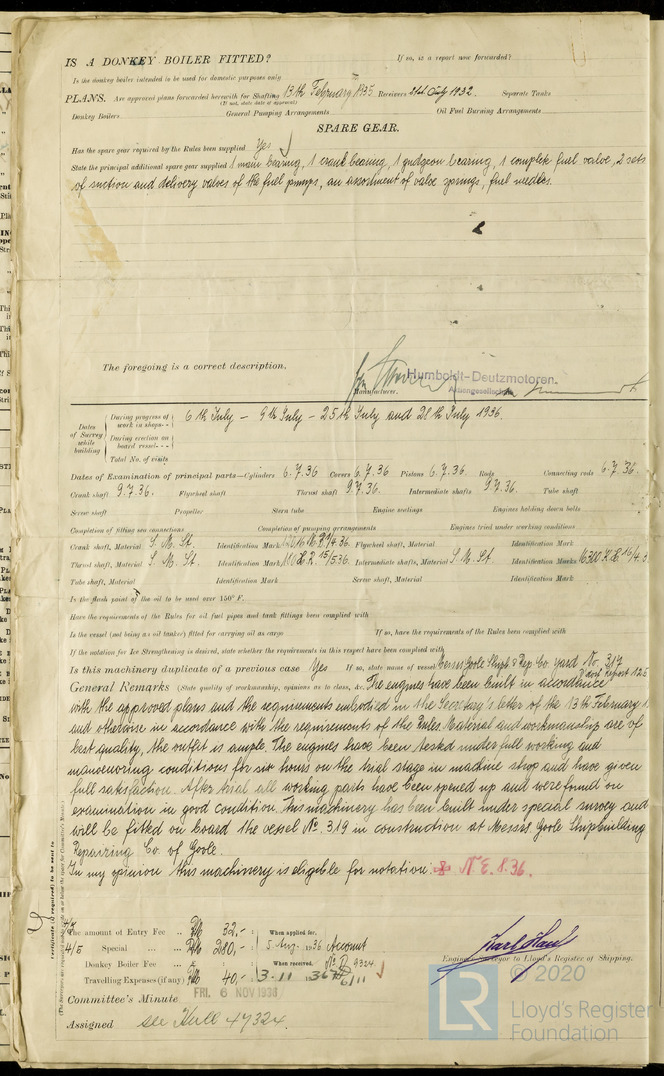 IS A DONKEY BOILER FITTED? If so, is a report now forwarded?
Is the donkey boiler intended to be used for domestic purposes only
PLANS. Are approved plans forwarded herewith for Shafting 13th February 1935 Receivers 21st July 1932. Separate Tanks
(If not, state date of approval)
Donkey Boilers General Pumping Arrangements Oil Fuel Burning Arrangements
SPARE GEAR.
Has the spare gear required by the Rules been supplied Yes
State the principal additional spare gear supplied 1 main bearing, 1 crank bearing, 1 gudgeon bearing, 1 complete fuel valve, 2 sets
of suction and delivery valves of the fuel pumps, an assortment of valve springs, fuel needles.
The foregoing is a correct description,
Humboldt-Deutzmotoren
Aktiengesellschaft
Manufacturer.
Dates of Survey while building
During progress of work in shops - - 6th July - 9th July - 25th July and 28th July 1936
During erection on board vessel - - -
Total No. of visits
Dates of Examination of principal parts—Cylinders 6.7.36 Covers 6.7.36 Pistons 6.7.36. Rods Connecting rods 6.7.36.
Crank shaft 9.7.36. Flywheel shaft Thrust shaft 9.7.36. Intermediate shafts 9.7.36 Tube shaft
Screw shaft Propeller Stern tube Engine seatings Engines holding down bolts
Completion of fitting sea connections Completion of pumping arrangements Engines tried under working conditions
Crank shaft, Material S. M. St. Identification Mark Flywheel shaft, Material Identification Mark
Thrust shaft, Material S. M. St. Identification Mark Intermediate shafts, Material S. M. St. Identification Marks
Tube shaft, Material Identification Mark Screw shaft, Material Identification Mark
Is the flash point of the oil to be used over 150° F.
Have the requirements of the Rules for oil fuel pipes and tank fittings been complied with
Is the vessel (not being an oil tanker) fitted for carrying oil as cargo If so, have the requirements of the Rules been complied with
If the notation for Ice Strengthening is desired, state whether the requirements in this respect have been complied with
Is this machinery duplicate of a previous case Yes If so, state name of vessel Messrs Goole Shipb & Rep Co. yard No. 317
General Remarks (State quality of workmanship, opinions as to class, &c. The engines have been built in accordance
with the approved plans and the requirements embodied in the Secretary's letter of the 13th February
and otherwise in accordance with the requirements of the Rules. Material and workmanship are of
best quality, the outfit is ample. The engines have been tested under full working and
manoeuvring conditions for six hours on the trial stage in machine shop and have given
full satisfaction. After trial all working parts have been opened up and were found on
examination in good condition. This machinery has been built under special survey and
will be fitted on board the vessel No. 319 in construction at Messrs. Goole Shipbuilding
Repairing Co. of Goole.
In my opinion this machinery is eligible for notation: N E. 8.36.
Certificate (if required) to be sent to
The amount of Entry Fee .. RM 32,- : When applied for,
4/5 Special .. .. RM 280,- : 5 Aug. 1936 Account
Donkey Boiler Fee .. £ : When received, No D 9324
Travelling Expenses (if any) RM 40,- : 3.11 1936
Engineer Surveyor to Lloyd's Register of Shipping.
Committee's Minute FRI. 6 NOV 1936
Assigned see Hull 47324.
LR © 2020
Lloyd's Register
Foundation